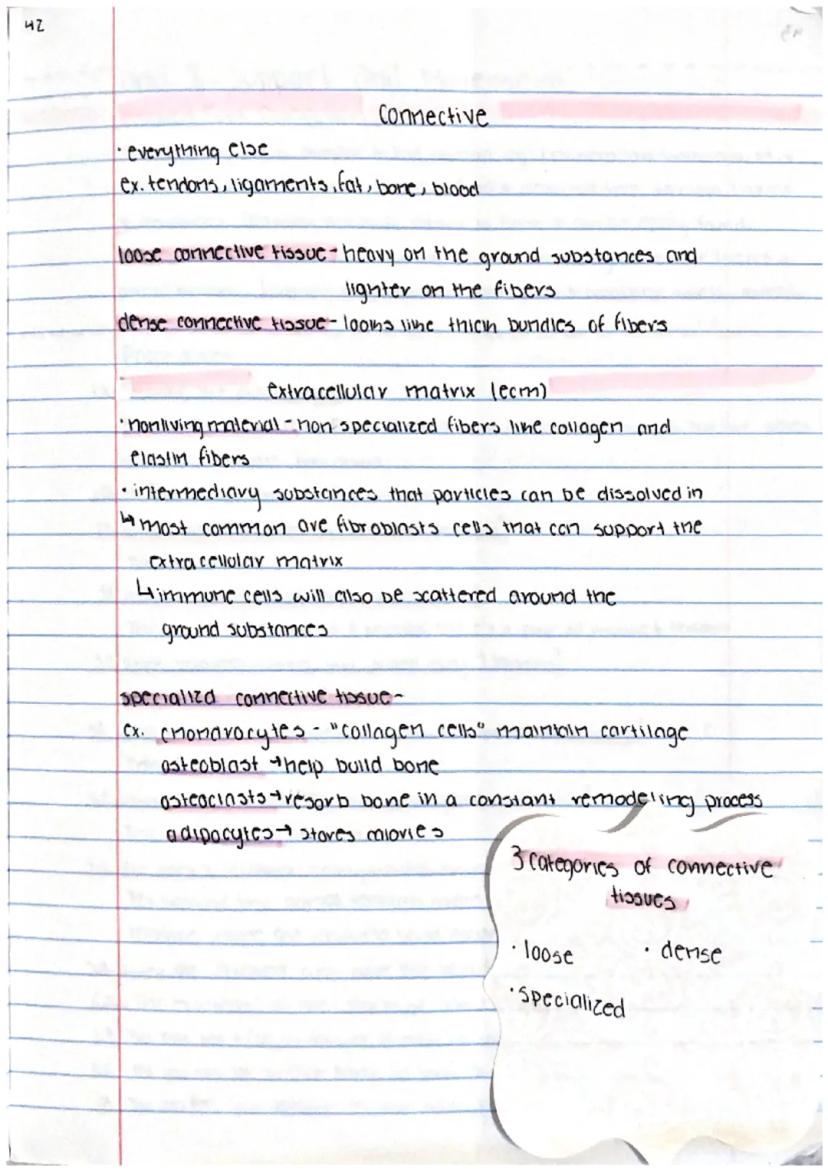 42
Connective
· everything else
ex. tendons, ligaments, fat, bone, blood
loose connective tissue - heavy on the ground substances and
lighter on the fibers
dense connective tissue - looks like thick bundles of fibers
extracellular matrix (ecm)
· nonliving material - non specialized fibers like collagen and
elastin fibers
· intermediary substances that particles can be dissolved in
↳ most common are fibroblasts cells that can support the
extracellular matrix
↳ immune cells will also be scattered around the
ground substances
specialized connective tissue -
ex. chondrocytes - "collagen cells" maintain cartilage
osteoblast → help build bone
osteoclasts → resorb bone in a constant remodeling process
adipocytes → stores calories
3 categories of connective
tissues
· loose · dense
· specialized